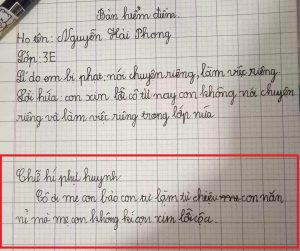 Bản kiểm điểm.
Họ tên: Nguyễn Hải Phong
Lớp: 3E
Lí do em bị phạt: nói chuyện riêng, làm việc riêng
Lời hứa: con xin lỗi cô từ nay con không nói chuyện
riêng và làm việc riêng trong lớp nữa
Chữ kí phụ huynh:
Cô ơi mẹ con bảo con tự làm tự chiệu me con năn
nỉ mà mẹ con không kí con xin lỗi cô ạ.